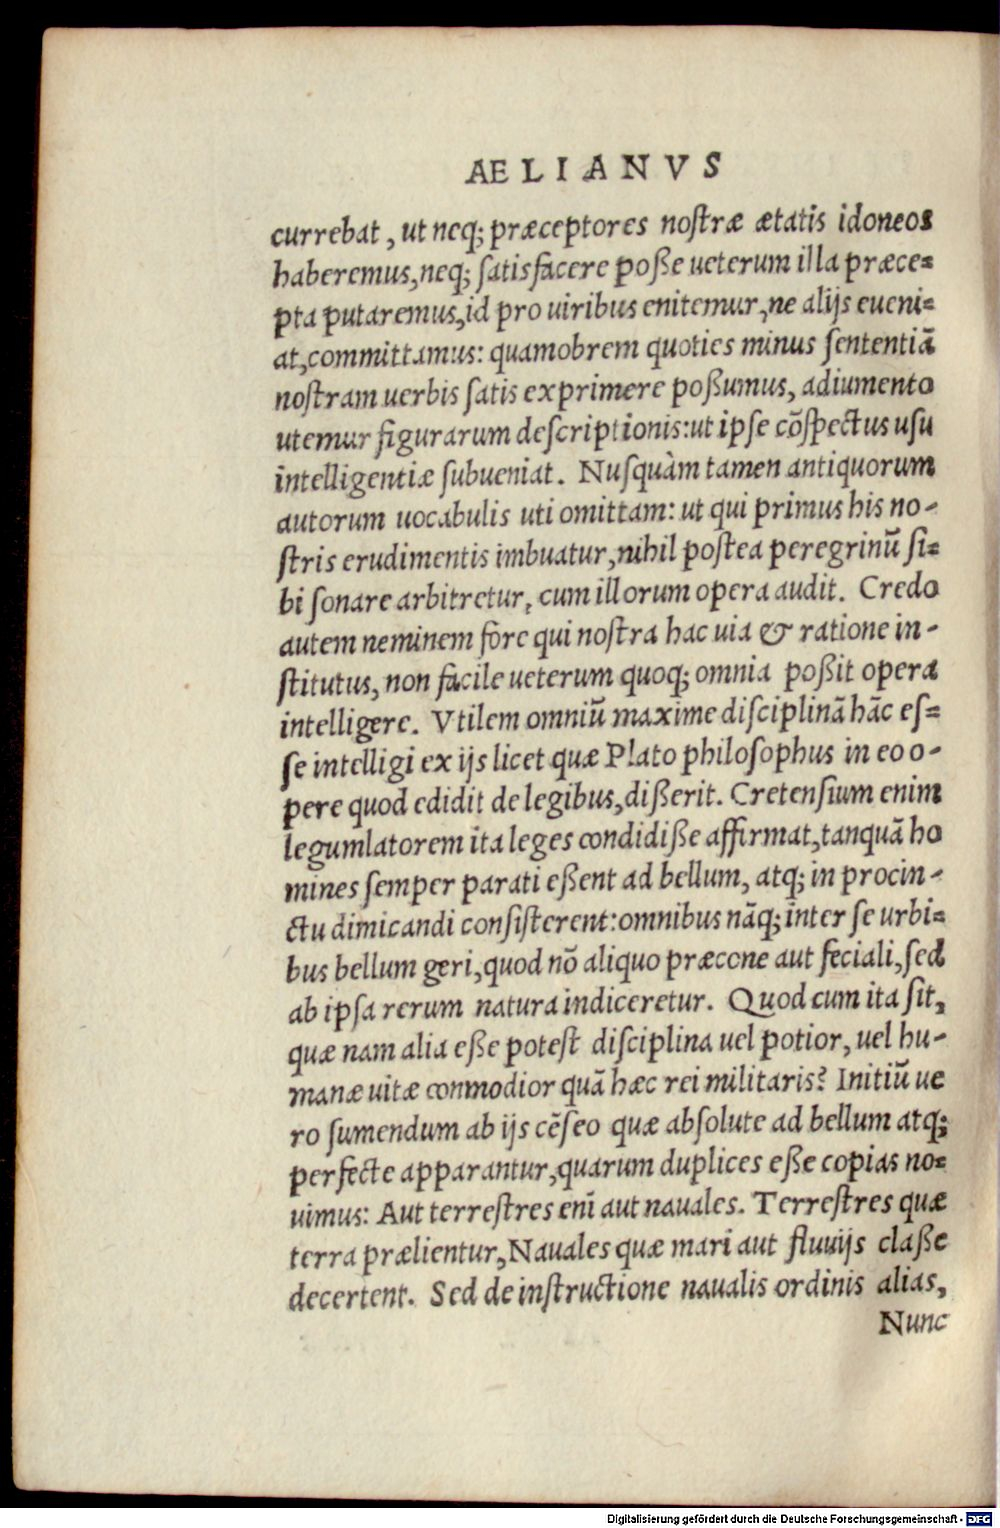 AELIANVS
currebat, ut neq; præceptores nostræ ætatis idoneos
haberemus, neq; satisfacere poße ueterum illa præce=
pta putaremus, id pro uiribus enitemur, ne alijs eueni=
at, committamus: quamobrem quoties minus sententiã
nostram uerbis satis exprimere poßumus, adiumento
utemur figurarum descriptionis: ut ipse cõspectus usu
intelligentiæ subueniat. Nusquàm tamen antiquorum
autorum uocabulis uti omittam: ut qui primus his no-
stris erudimentis imbuatur, nihil postea peregrinũ si=
bi sonare arbitretur, cum illorum opera audit. Credo
autem neminem fore qui nostra hac uia & ratione in-
stitutus, non facile ueterum quoq; omnia poßit opera
intelligere. Vtilem omniũ maxime disciplinã hãc es=
se intelligi ex ijs licet quæ Plato philosophus in eo o-
pere quod edidit de legibus, dißerit. Cretensium enim
legumlatorem ita leges condidiße affirmat, tanquã ho
mines semper parati eßent ad bellum, atq; in procin-
ctu dimicandi consisterent: omnibus nãq; inter se urbi=
bus bellum geri, quod nõ aliquo præcone aut feciali, sed
ab ipsa rerum natura indiceretur. Quod cum ita sit,
quæ nam alia eße potest disciplina uel potior, uel hu-
manæ uitæ conmodior quã hæc rei militaris? Initiũ ue
ro sumendum ab ijs cẽseo quæ absolute ad bellum atq;
perfecte apparantur, quarum duplices eße copias no=
uimus: Aut terrestres enĩ aut nauales. Terrestres quæ
terra prælientur, Nauales quæ mari aut fluuijs claße
decertent. Sed de instructione naualis ordinis alias,
Nunc
Digitalisierung gefördert durch die Deutsche Forschungsgemeinschaft - DFG